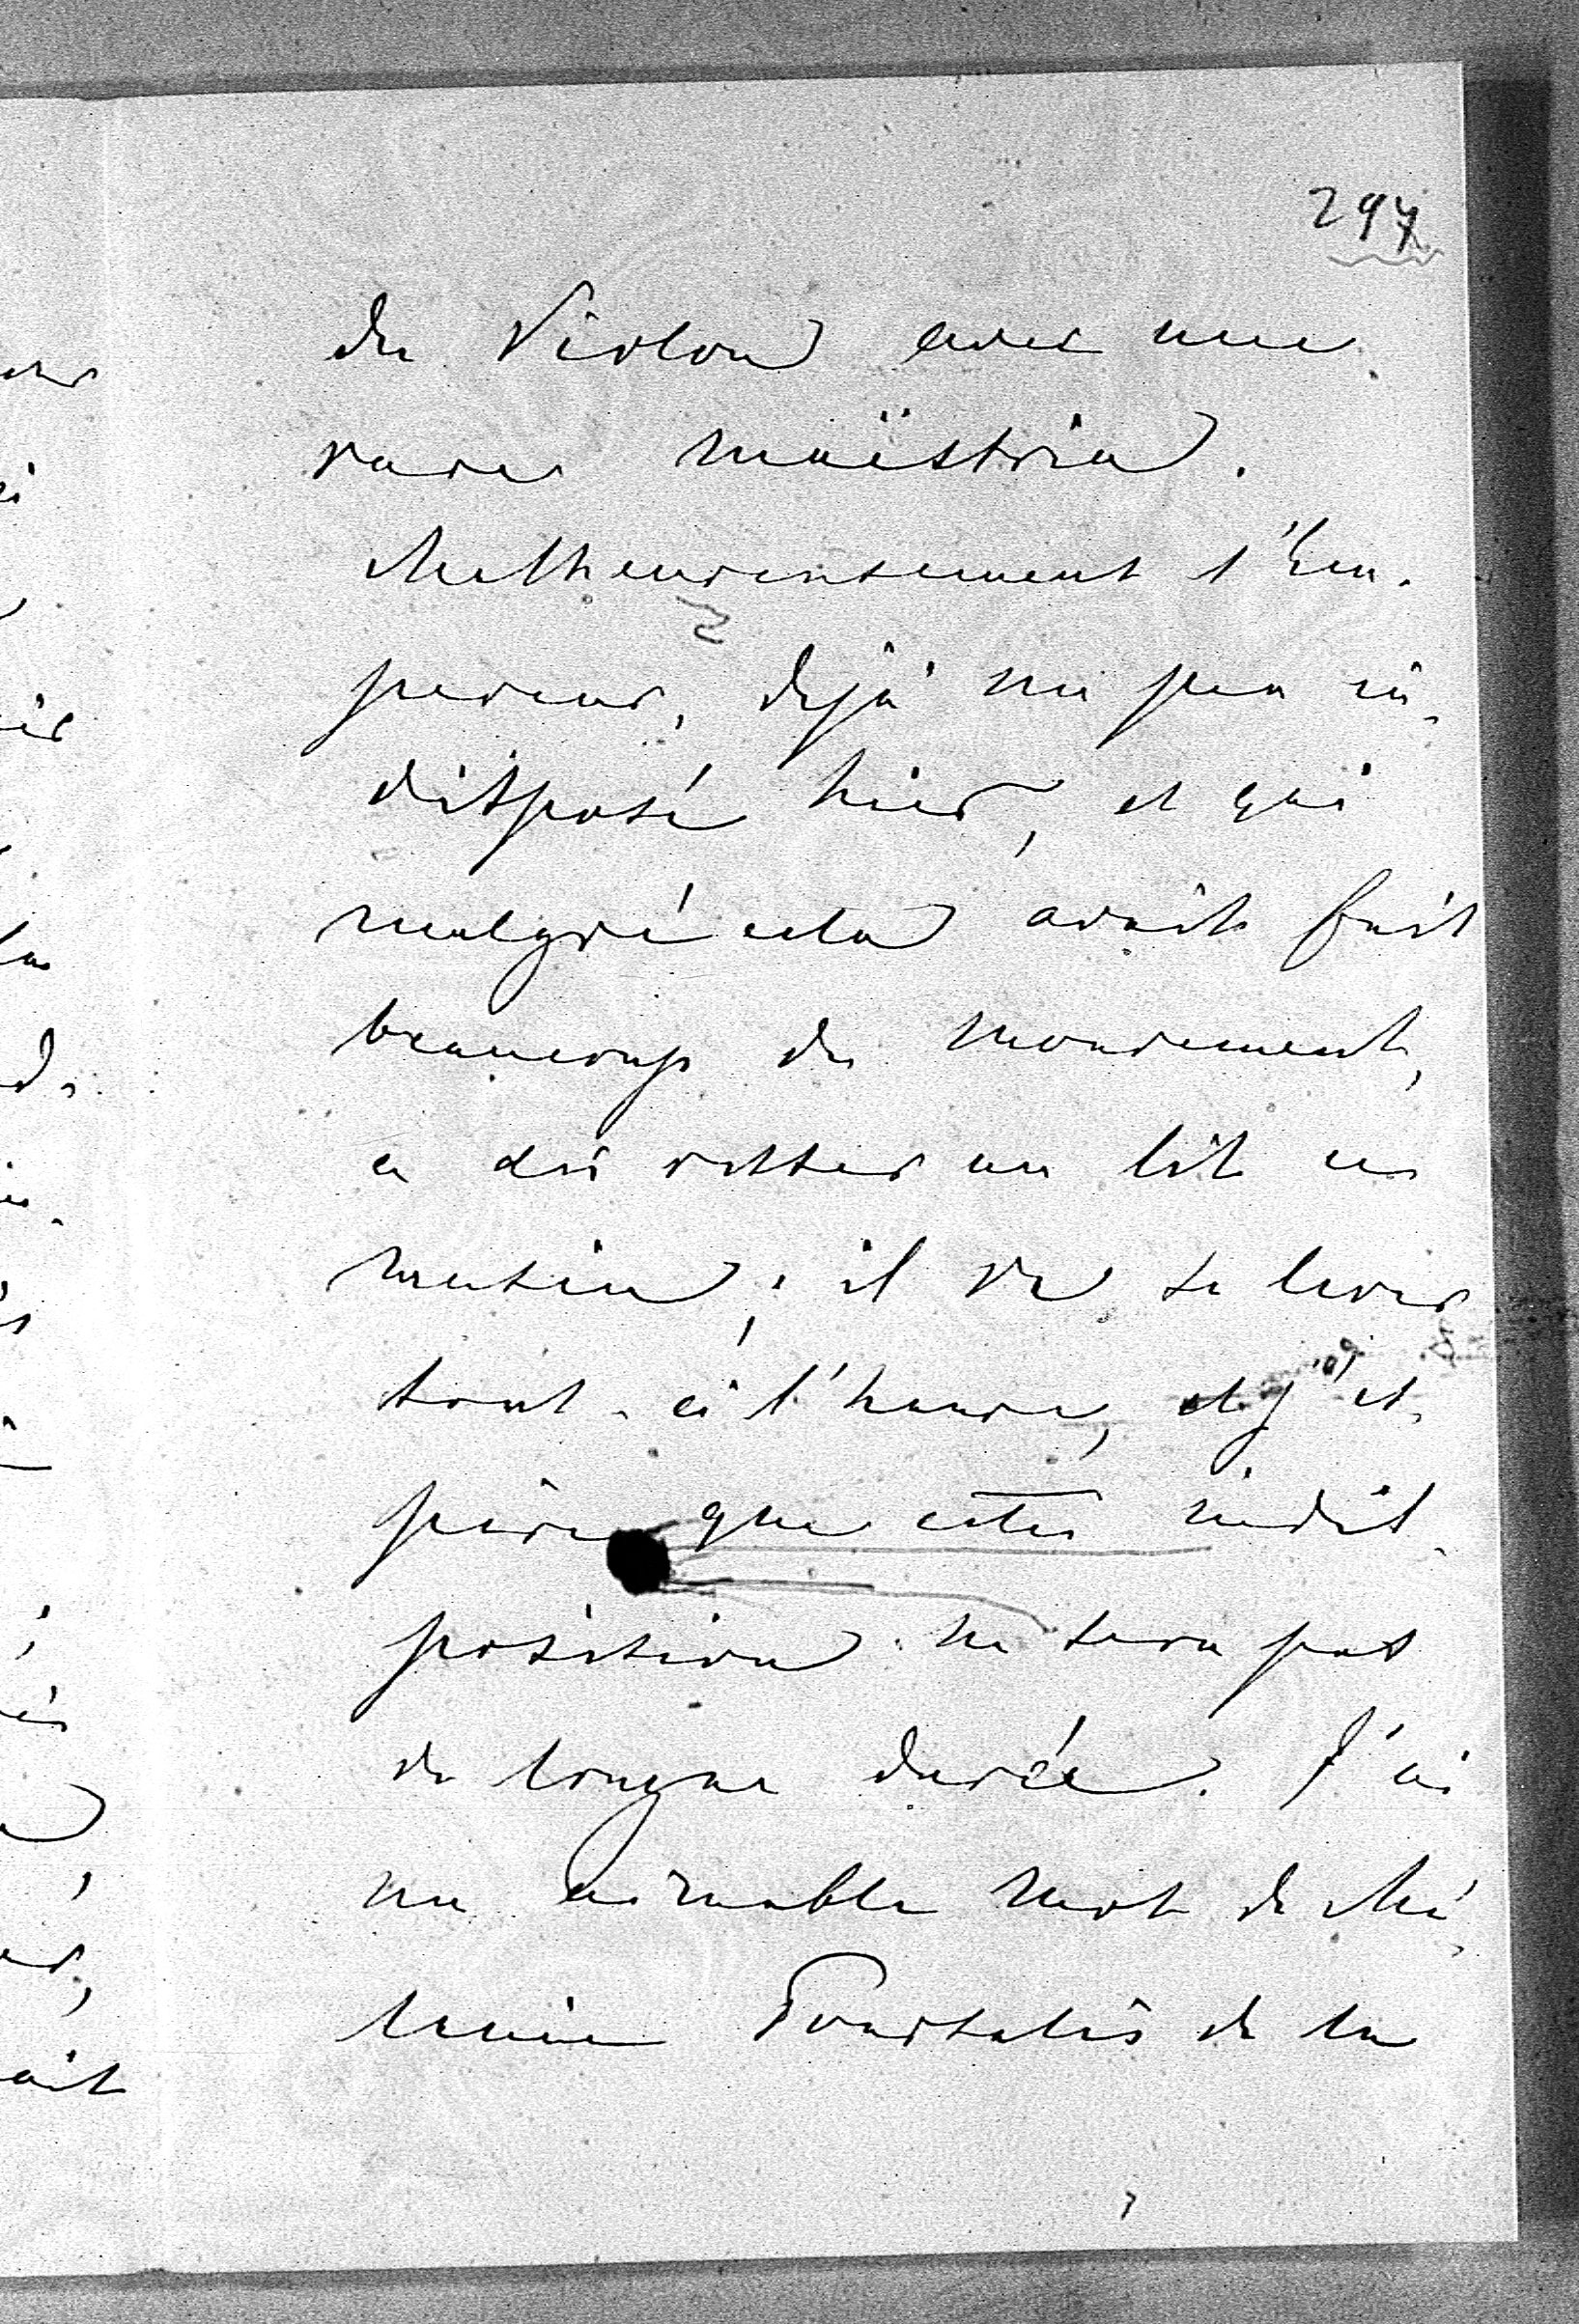 297
du Violon avec une
rare maëstria.
Malheureusement l'Em-
pereur, déjà un peu in-
disposé hier, et qui
malgré cela avait fait
beaucoup de mouvement,
a dû rester au lit ce
matin; il va se lever
tout-à l'heure, et j'es-
père que cette indis-
position ne sera pas
de longue durée. J'ai
un aimable mot de Mé-
lanie Pourtalès de la